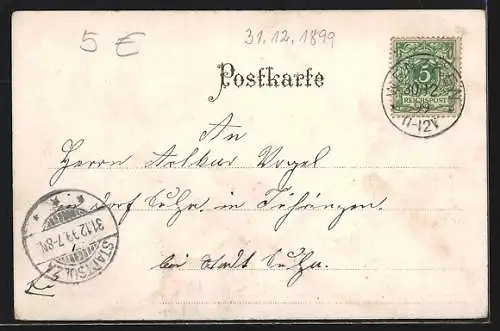 5 €
31.12.1899
Postkarte
5
REICHSPOST
30/12
99
11-12V
An
Herrn Arthur Vogel
Dorf Sulza in Thüringen
31.12.99.7-8N.
STADTSULZA
bei Stadt Sulza.